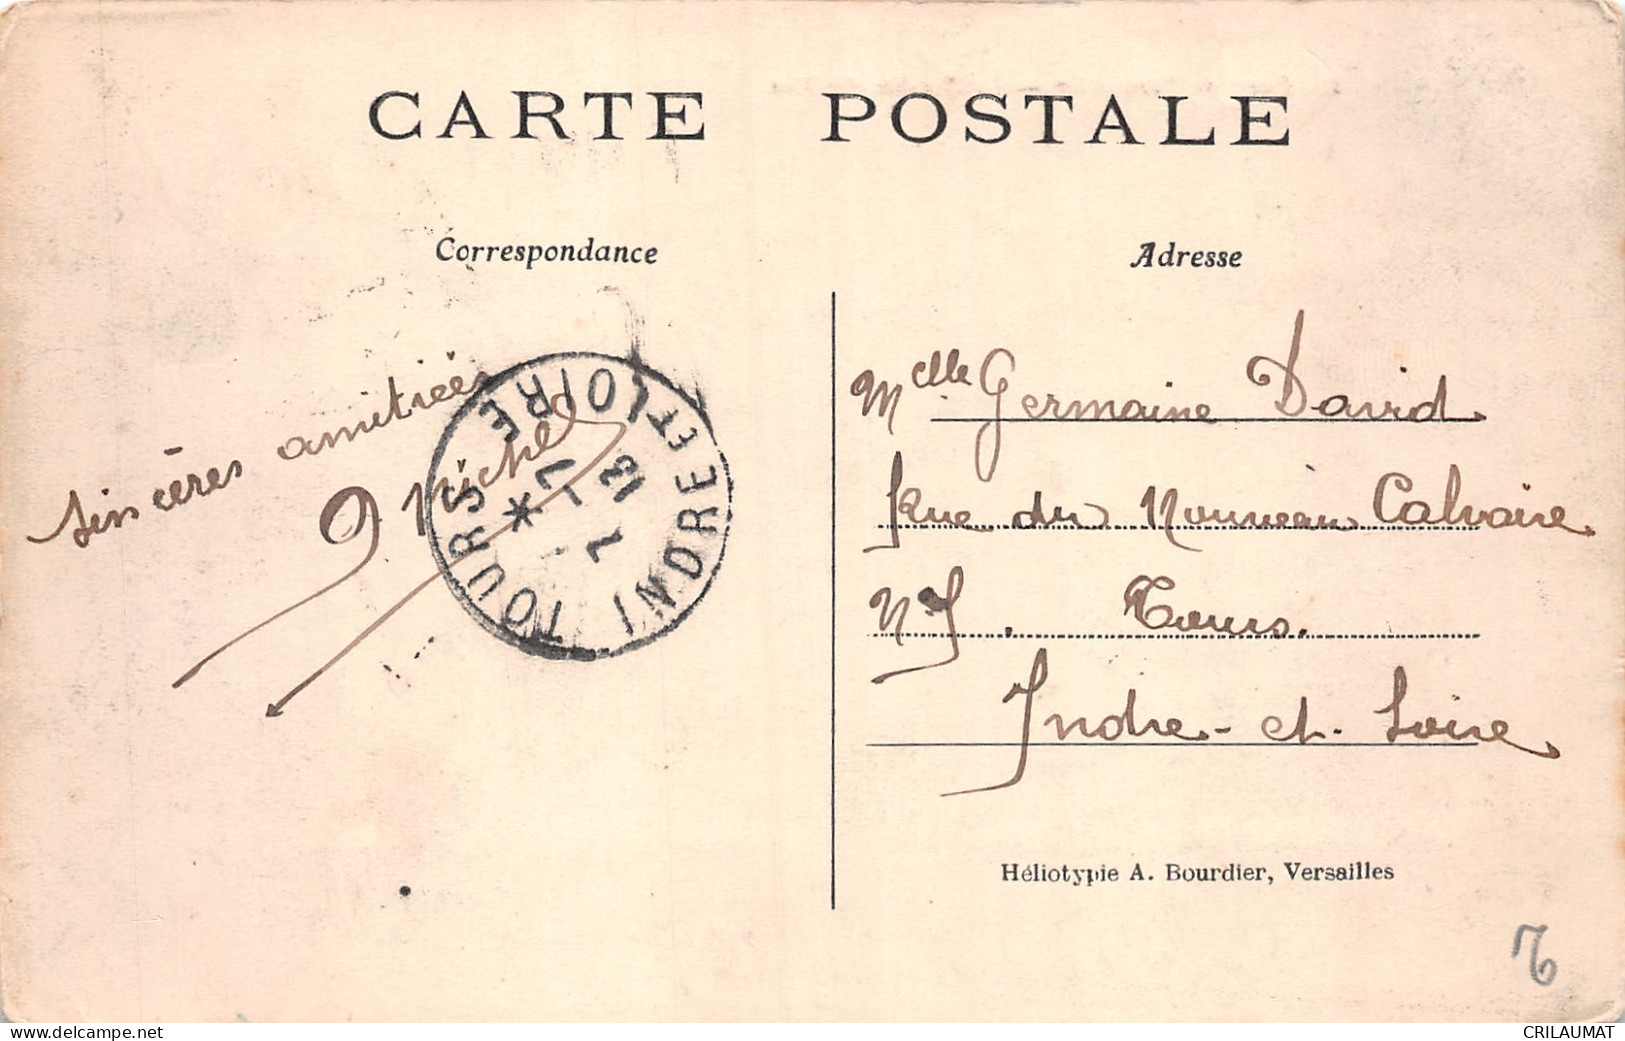 CARTE POSTALE
Correspondance
Adresse
sincères amitiées
Michel
TOURS * INDRE ET LOIRE
7 13
Melle Germaine David
Rue du Nouveau Calvaire
N° Tours.
Indre-et-Loire
Héliotypie A. Bourdier, Versailles
www.delcampe.net
CRILAUMAT